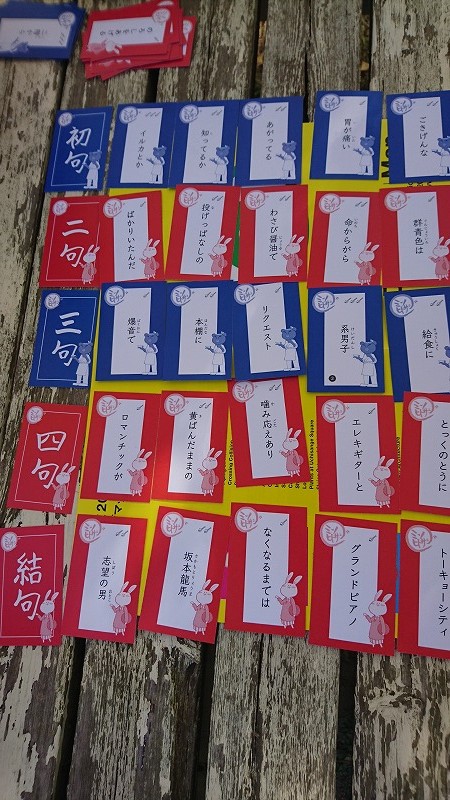 初句
イルカとか
知ってるか
あがってる
胃が痛い
ごきげんな
二句
ばかりいたんだ
投げっぱなしの
わさび醤油で
命からがら
群青色は
三句
爆音で
本棚に
リクエスト
系男子
給食に
四句
ロマンチックが
黄ばんだままの
噛み応えあり
エレキギターと
とっくのとうに
Plants at Uchisange Square
結句
志望の男
坂本龍馬
なくなるまでは
グランドピアノ
トーキョーシティ